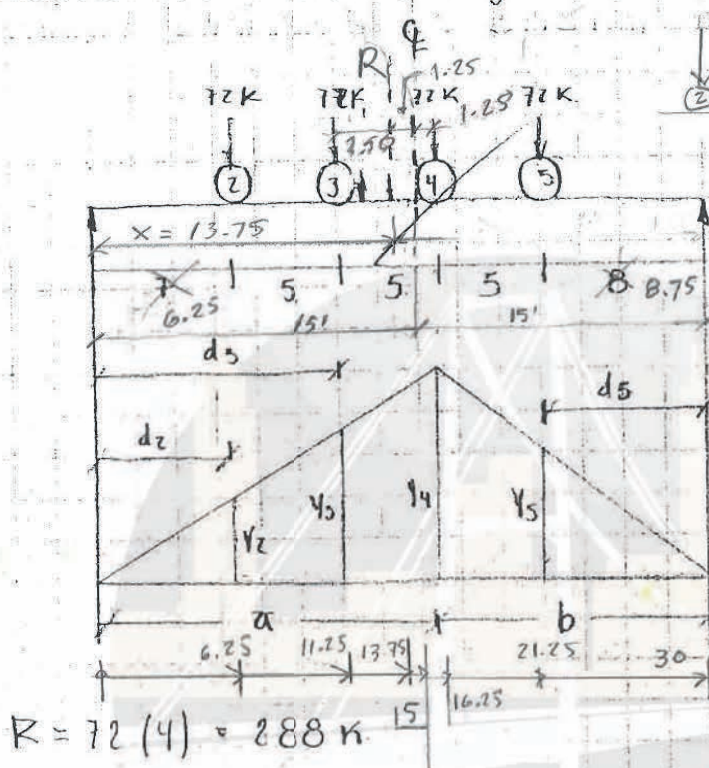 ℄
R 1.25
72K 72K 72K 1.25 72K
2.50
2 3 4 5
x = 13.75
7 5 5 5 8 8.75
6.25
15' 15'
d3
d5
d2
y2 y3 y4 y5
a b
6.25 11.25 13.75 21.25 30
16.25
15
R = 72 (4) = 288 K